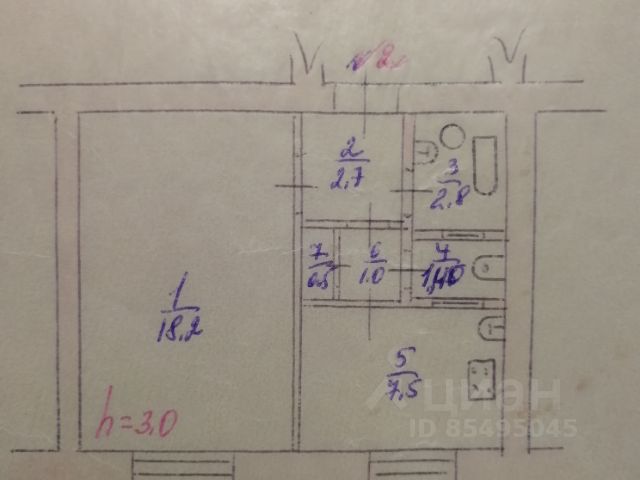 к 2.
2
2,7
3
2,8
7
0,5
6
1.0
4
1,40
1
18,2
5
7,5
h=3.0
ЦИАН
ID 85495045